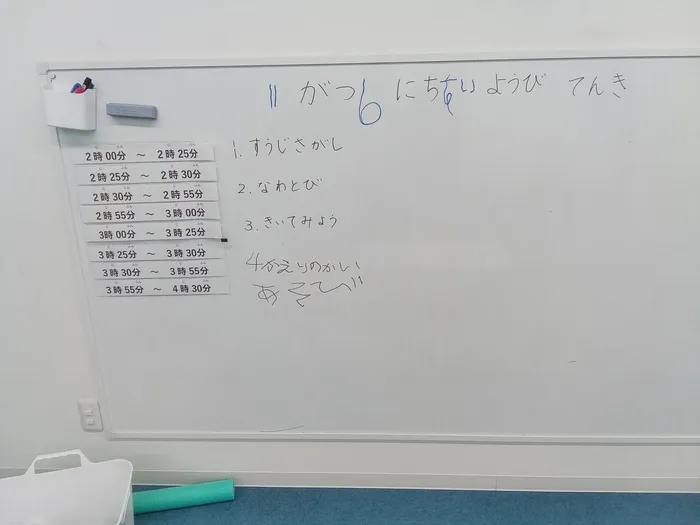 11 がつ 6 にち すい ようび てんき
2時00分 ～ 2時25分
2時25分 ～ 2時30分
2時30分 ～ 2時55分
2時55分 ～ 3時00分
3時00分 ～ 3時25分
3時25分 ～ 3時30分
3時30分 ～ 3時55分
3時55分 ～ 4時30分
1. すうじさがし
2. なわとび
3. きいてみよう
4 かえりのかい
あそび